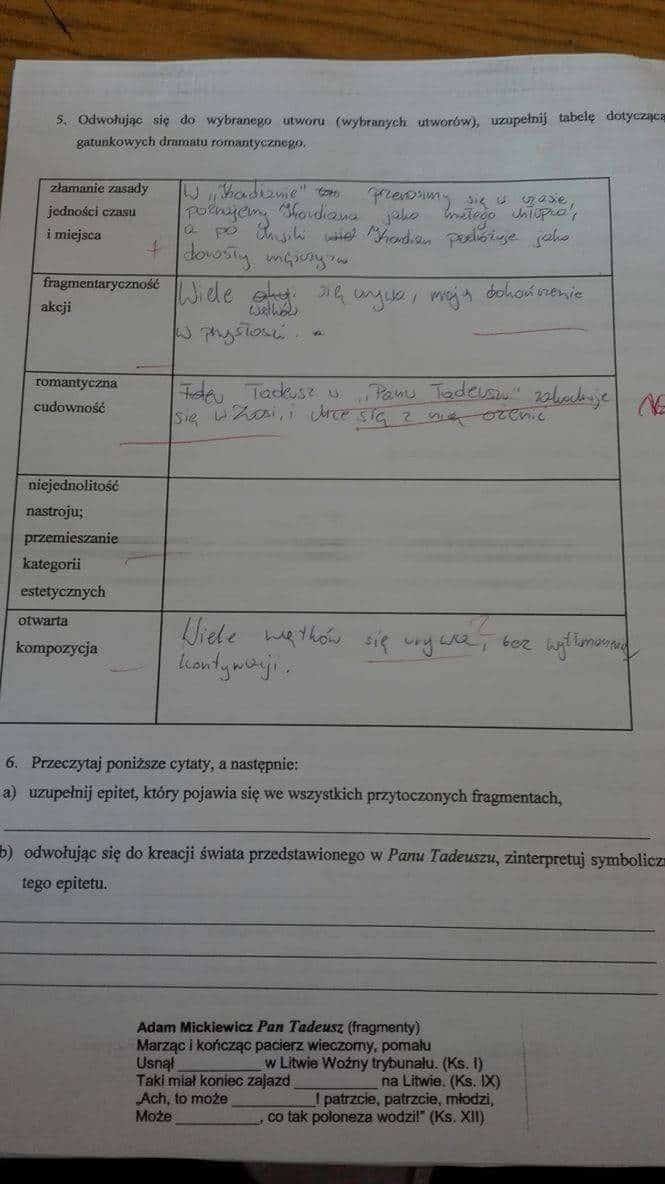 5. Odwołując się do wybranego utworu (wybranych utworów), uzupełnij tabelę dotyczącą
gatunkowych dramatu romantycznego.
złamanie zasady
jedności czasu
i miejsca
+
W „Kordianie" przenosimy się w czasie,
poznajemy Kordiana jako małego chłopca,
a po chwili Kordian podróżuje jako
dorosły mężczyzna
fragmentaryczność
akcji
Wiele wątków się urywa, mają dokończenie
w przyszłości.
romantyczna
cudowność
Tadeusz w „Panu Tadeuszu" zakochuje
się w Zosi, i chce się z nią ożenić
niejednolitość
nastroju;
przemieszanie
kategorii
estetycznych
otwarta
kompozycja
?
Wiele wątków się urywa, bez
kontynuacji.
6. Przeczytaj poniższe cytaty, a następnie:
a) uzupełnij epitet, który pojawia się we wszystkich przytoczonych fragmentach,
b) odwołując się do kreacji świata przedstawionego w Panu Tadeuszu, zinterpretuj symbolicz
tego epitetu.
Adam Mickiewicz Pan Tadeusz (fragmenty)
Marząc i kończąc pacierz wieczorny, pomału
Usnął __________ w Litwie Woźny trybunału. (Ks. I)
Taki miał koniec zajazd __________ na Litwie. (Ks. IX)
„Ach, to może __________! patrzcie, patrzcie, młodzi,
Może __________, co tak poloneza wodzi!" (Ks. XII)